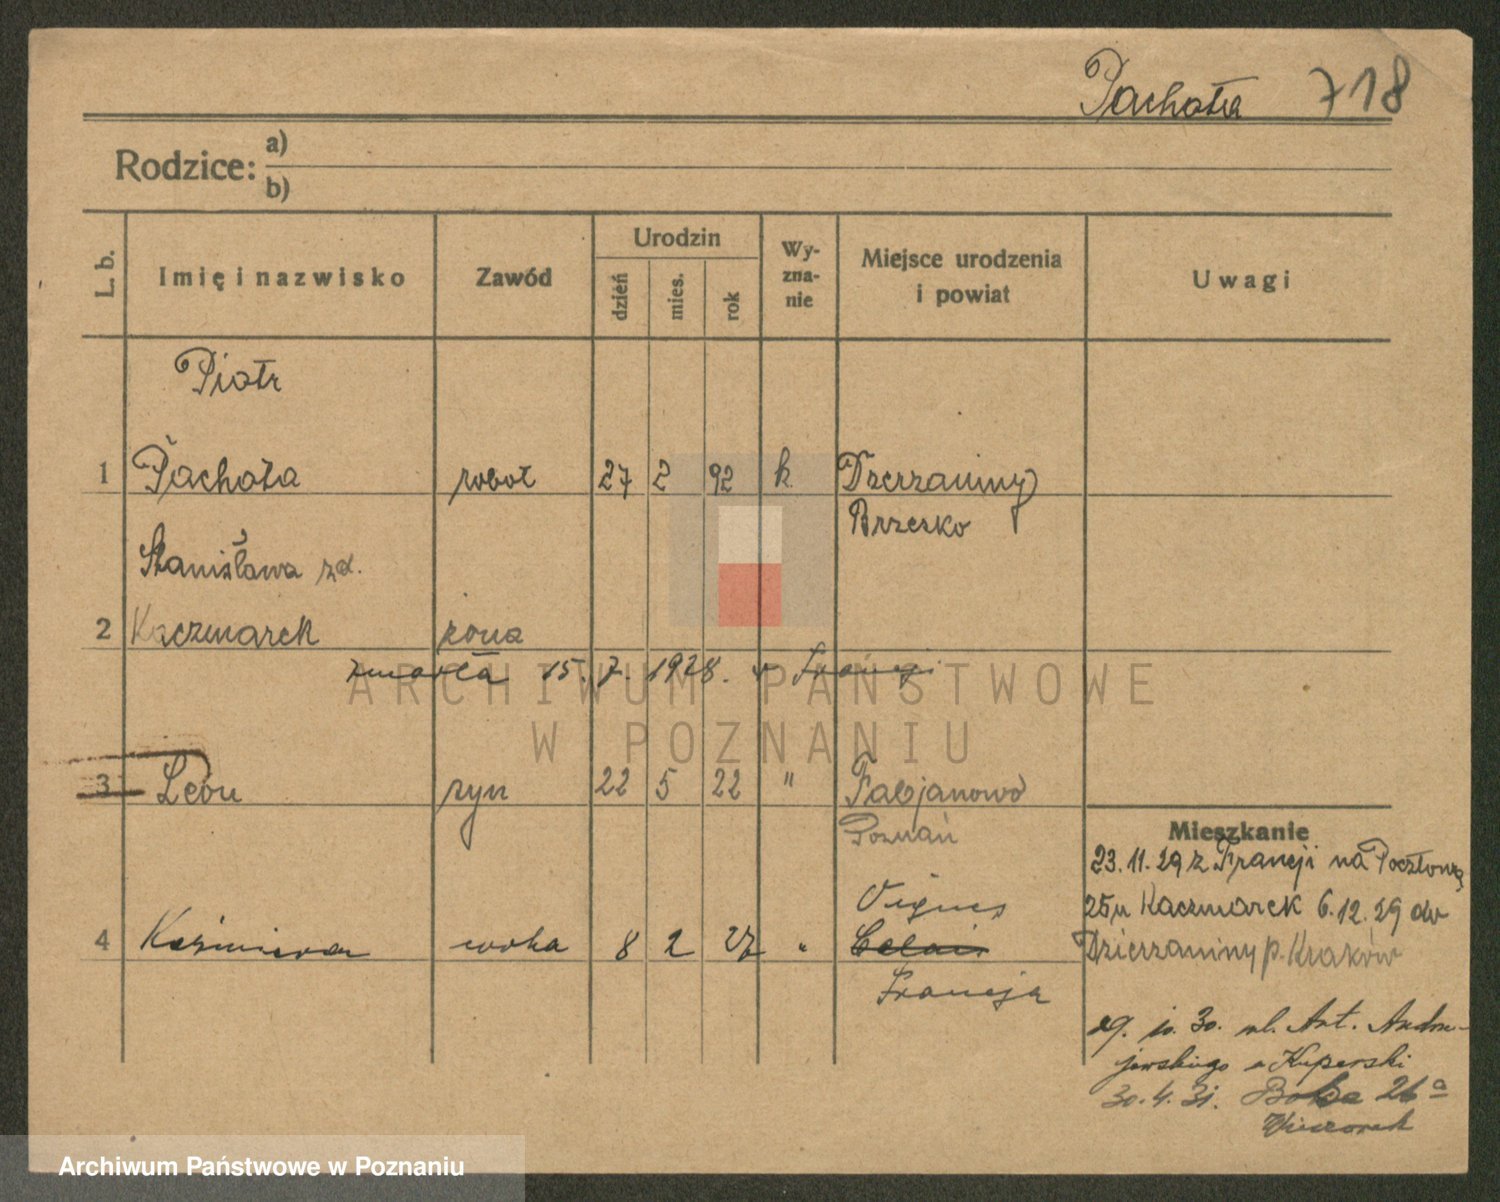 Pachota 718
Rodzice: a)
b)
L. b. Imię i nazwisko Zawód Urodzin dzień mies. rok Wy-zna-nie Miejsce urodzenia i powiat Uwagi
Piotr
1 Pachota robot 27 2 92 k. Dzerzaniny
Brzesko
Stanisława zd.
2 Kaczmarek żona
zmarła 15. 7. 1928. w Francji
3 Leon syn 22 5 22 " Fabjanowo
Poznań
Mieszkanie
23.11.29 z Francji na Pocztową
25 u Kaczmarek 6.12.29 do
Dzierzaniny p. Kraków
Vignes
4 Kazimiera córka 8 2 27 " Calais
Francja
29. 10. 30. ul. Art. Andrze-
jewskiego u Kuperski
30. 4. 31. 26a
Wieczorek
ARCHIWUM PAŃSTWOWE
W POZNANIU
Archiwum Państwowe w Poznaniu